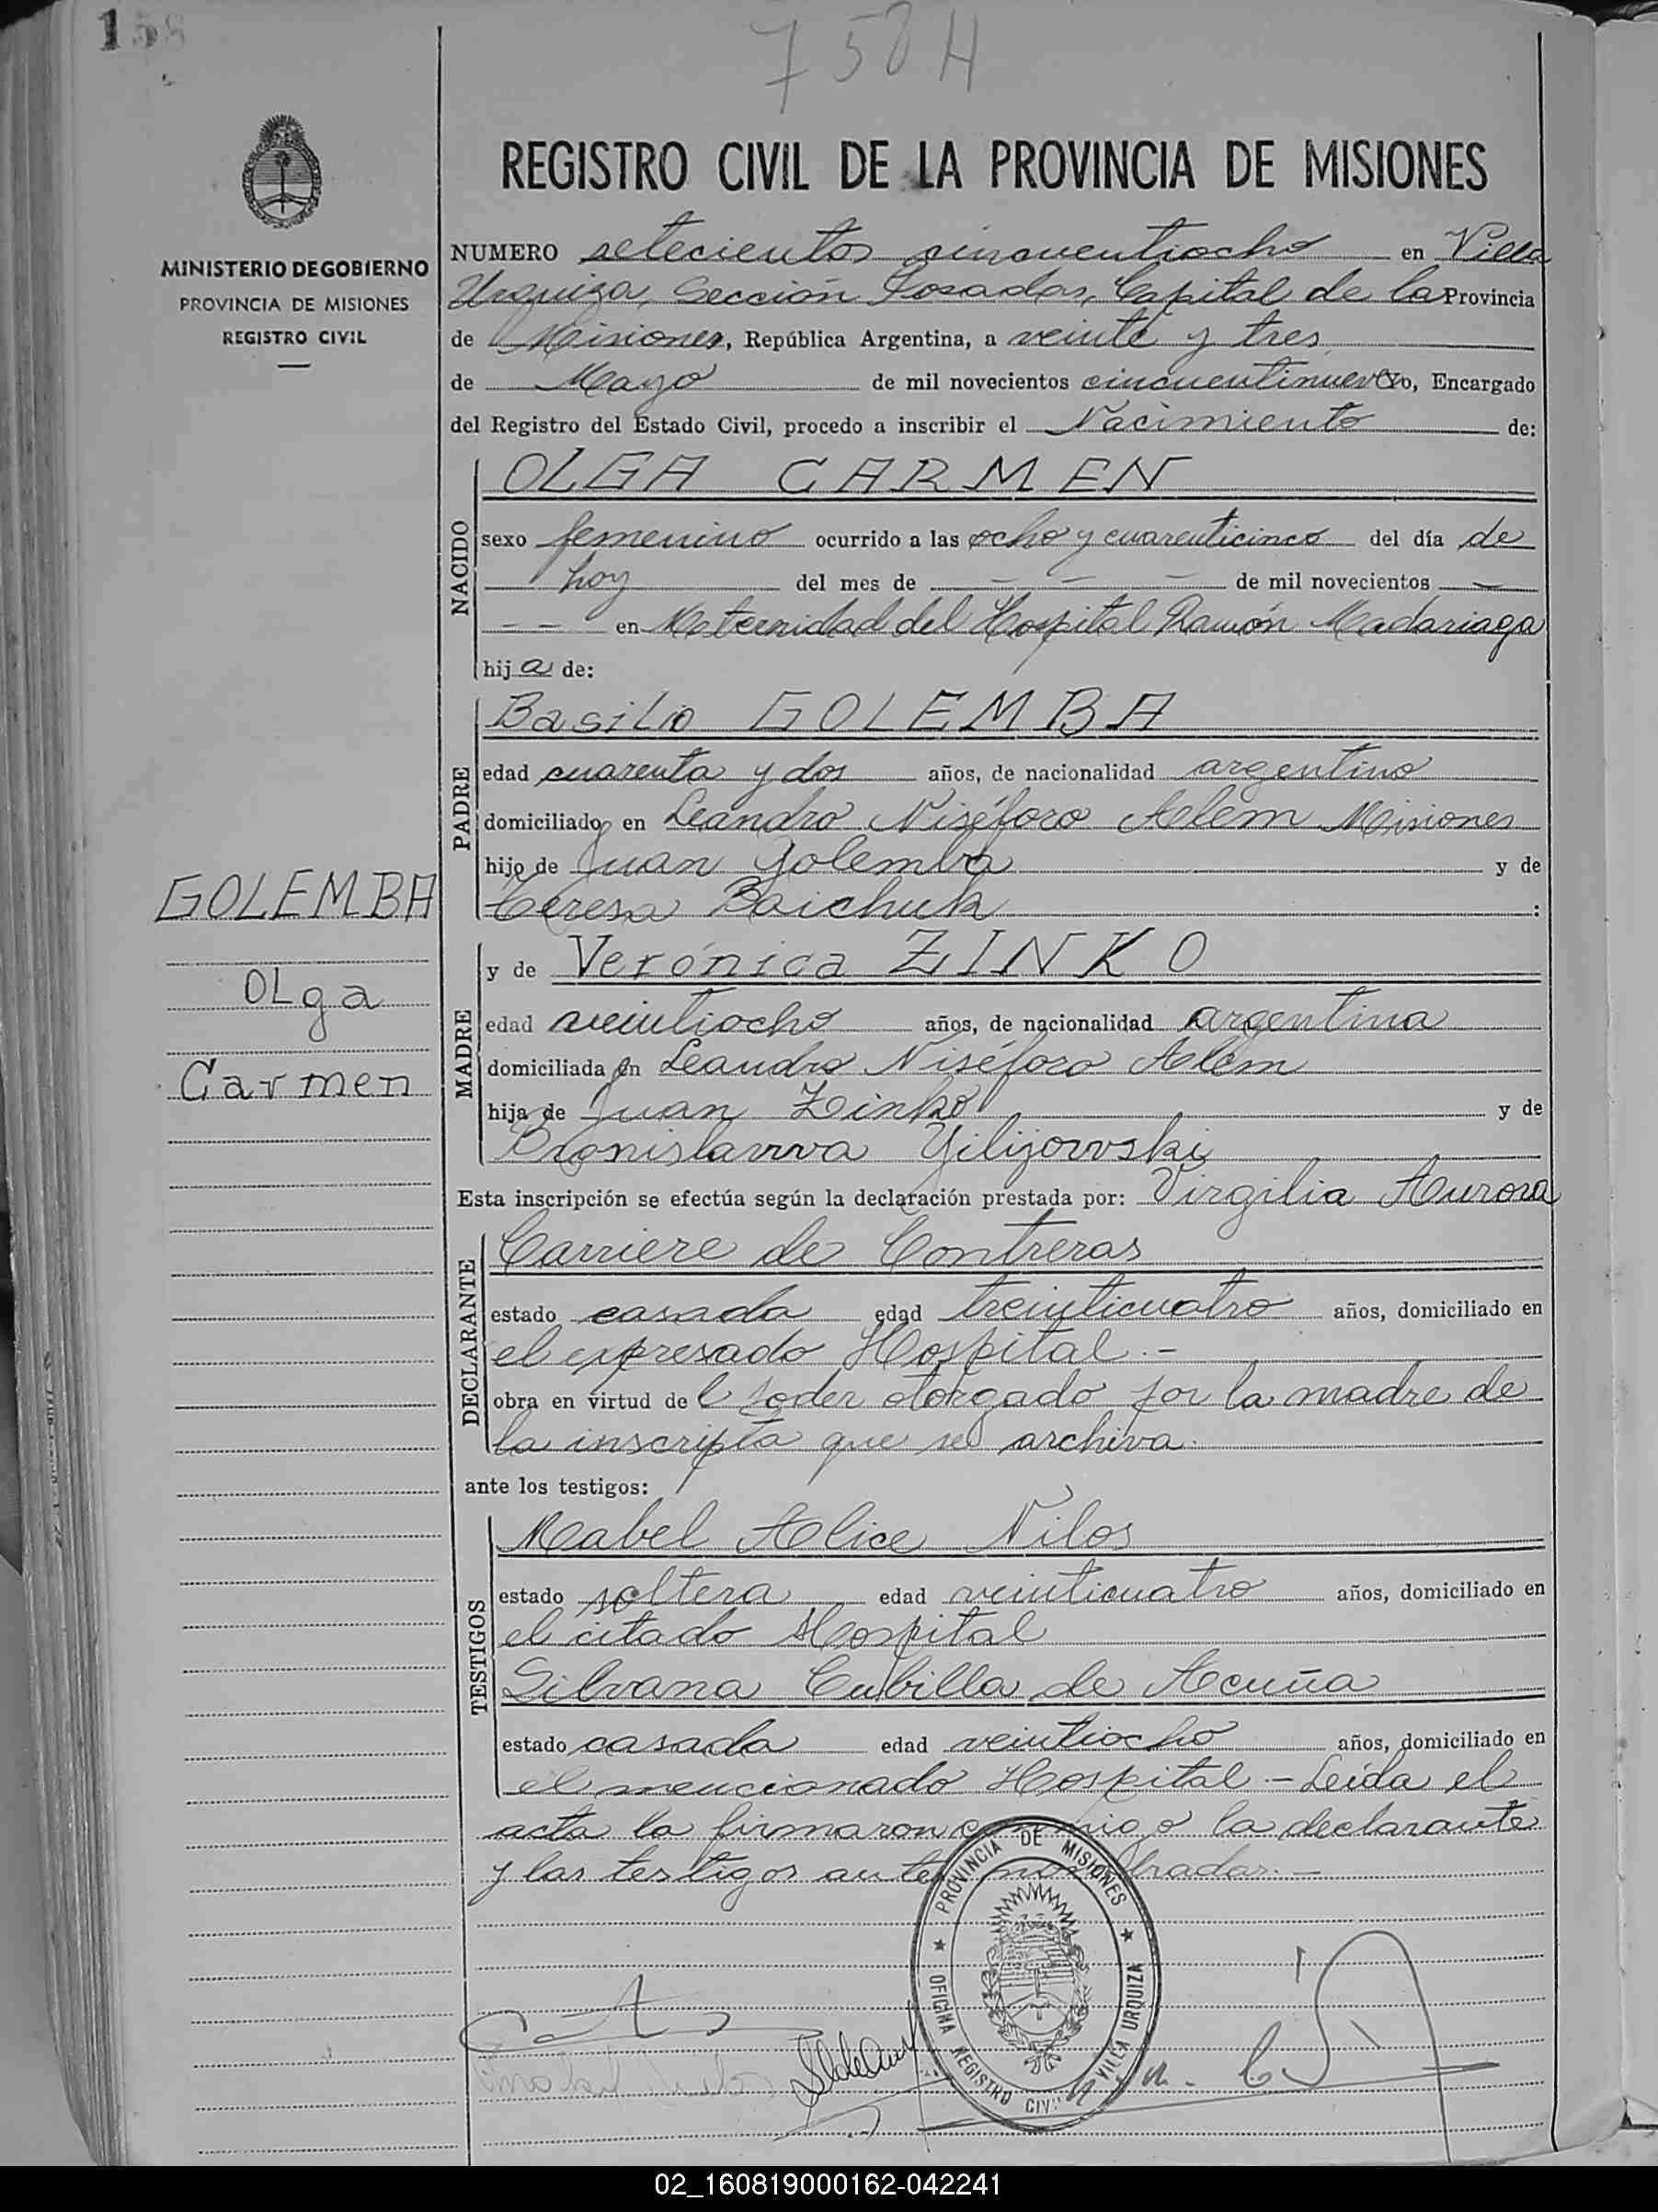 158
758 H
MINISTERIO DE GOBIERNO
PROVINCIA DE MISIONES
REGISTRO CIVIL
REGISTRO CIVIL DE LA PROVINCIA DE MISIONES
NUMERO setecientos cincuentiocho en Villa
Urquiza, Sección Posadas, Capital de la Provincia
de Misiones, República Argentina, a veinte y tres
de Mayo de mil novecientos cincuentinueve yo, Encargado
del Registro del Estado Civil, procedo a inscribir el Nacimiento de:
NACIDO
OLGA CARMEN
sexo femenino ocurrido a las ocho y cuarenticinco del día de
hoy del mes de - - - de mil novecientos -
- - en Maternidad del Hospital Ramón Madariaga
hija de:
PADRE
Basilio GOLEMBA
edad cuarenta y dos años, de nacionalidad argentino
domiciliado en Leandro Niséforo Alem Misiones
hijo de Juan Golemba y de
Teresa Baichuk :
GOLEMBA
Olga
Carmen
MADRE
y de Verónica ZINKO
edad veintiocho años, de nacionalidad argentina
domiciliada en Leandro Niséforo Alem
hija de Juan Zinko y de
Bronislavva Yilijovvski
Esta inscripción se efectúa según la declaración prestada por: Virgilia Aurora
DECLARANTE
Carriere de Contreras
estado casada edad treinticuatro años, domiciliado en
el expresado Hospital.-
obra en virtud del poder otorgado por la madre de
la inscripta que se archiva.
ante los testigos:
TESTIGOS
Mabel Alice Nilos
estado soltera edad veinticuatro años, domiciliado en
el citado Hospital
Silvana Cubilla de Acuña
estado casada edad veintiocho años, domiciliado en
el mencionado Hospital - Leída el
acta la firmaron conmigo la declarante
y las testigos antes nombradas.-
PROVINCIA DE MISIONES
OFICINA REGISTRO CIVIL VILLA URQUIZA
02_160819000162-042241